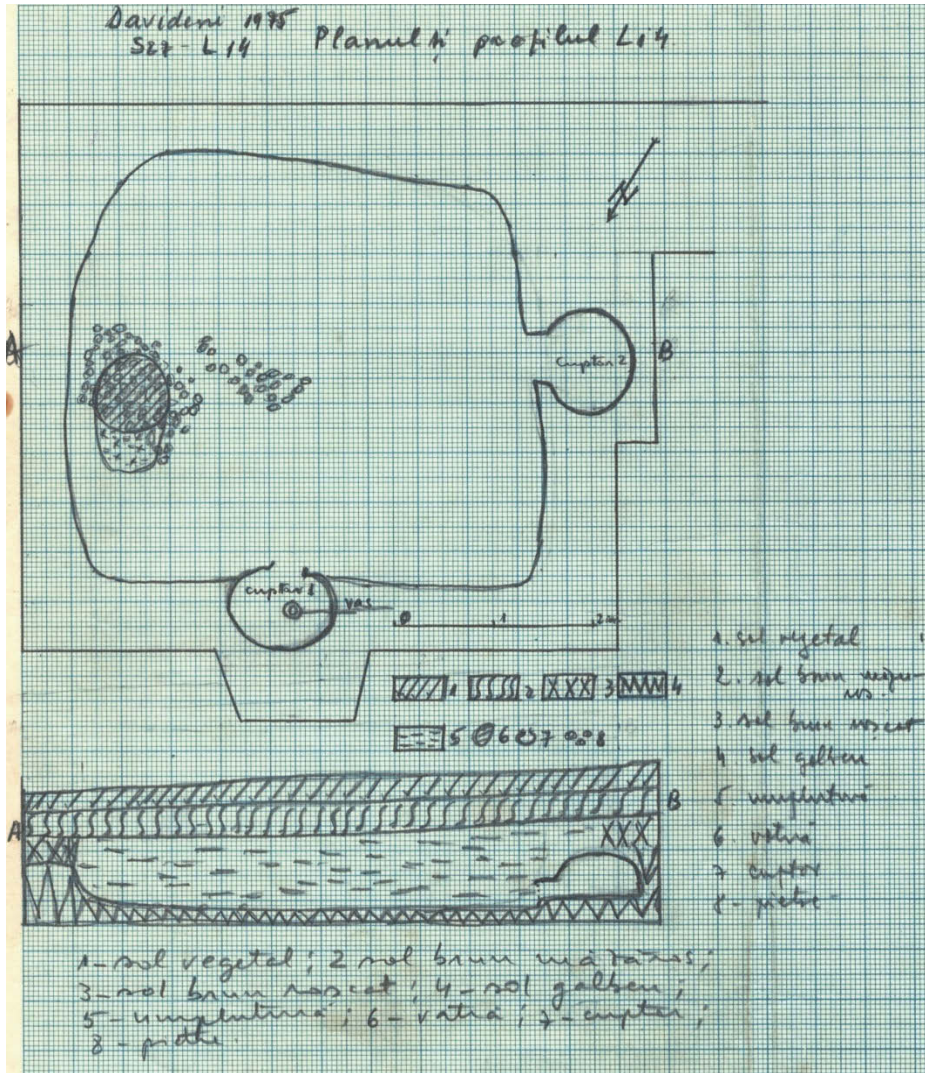 Davideni 1975
S27 - L14
Planul și profilul L14
A
B
cuptor 2
cuptor 1
vas
0 1 2m
1 2 3 4
5 6 7 8
1. sol vegetal
2. sol brun
3. sol brun roșcat
4 sol galben
5 umplutură
6 vatră
7 cuptor
8 - pietre
A
B
1 - sol vegetal; 2 sol brun măzăros;
3 - sol brun roșcat; 4 - sol galben;
5 - umplutură; 6 - vatră; 7 - cuptor;
8 - pietre.